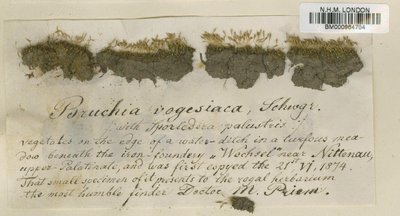 N.H.M. LONDON
BM000984704
Bruchia vogesiaca, Schwgr.
(with Sporledera palustris)
vegetates on the edge of a water-ditch in a turfous mea-
doo beneath the iron-foundery „Wechsel" near Nittenau,
upper-Palatinate, and was first espyed the 21st VI, 1874.
That small specimen of it presents to the regal herbarium
the most humble finder Doctor M. Priem.